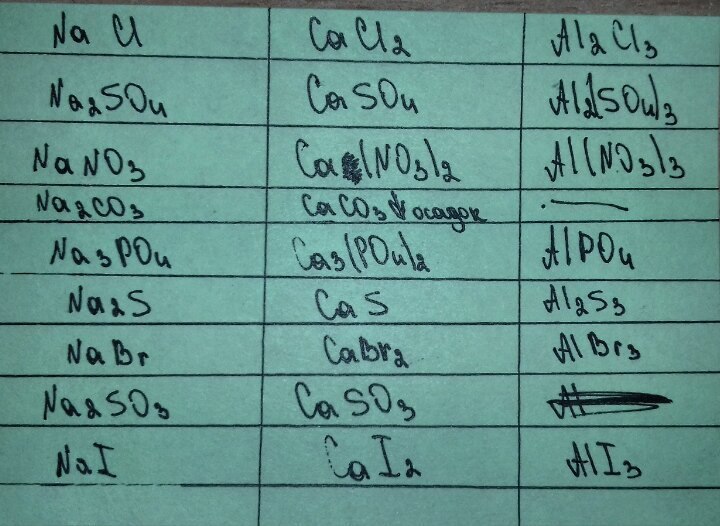 NaCl CaCl2 Al2Cl3
Na2SO4 CaSO4 Al2(SO4)3
NaNO3 Ca(NO3)2 Al(NO3)3
Na2CO3 CaCO3↓осадок —
Na3PO4 Ca3(PO4)2 AlPO4
Na2S CaS Al2S3
NaBr CaBr2 AlBr3
Na2SO3 CaSO3
NaI CaI2 AlI3